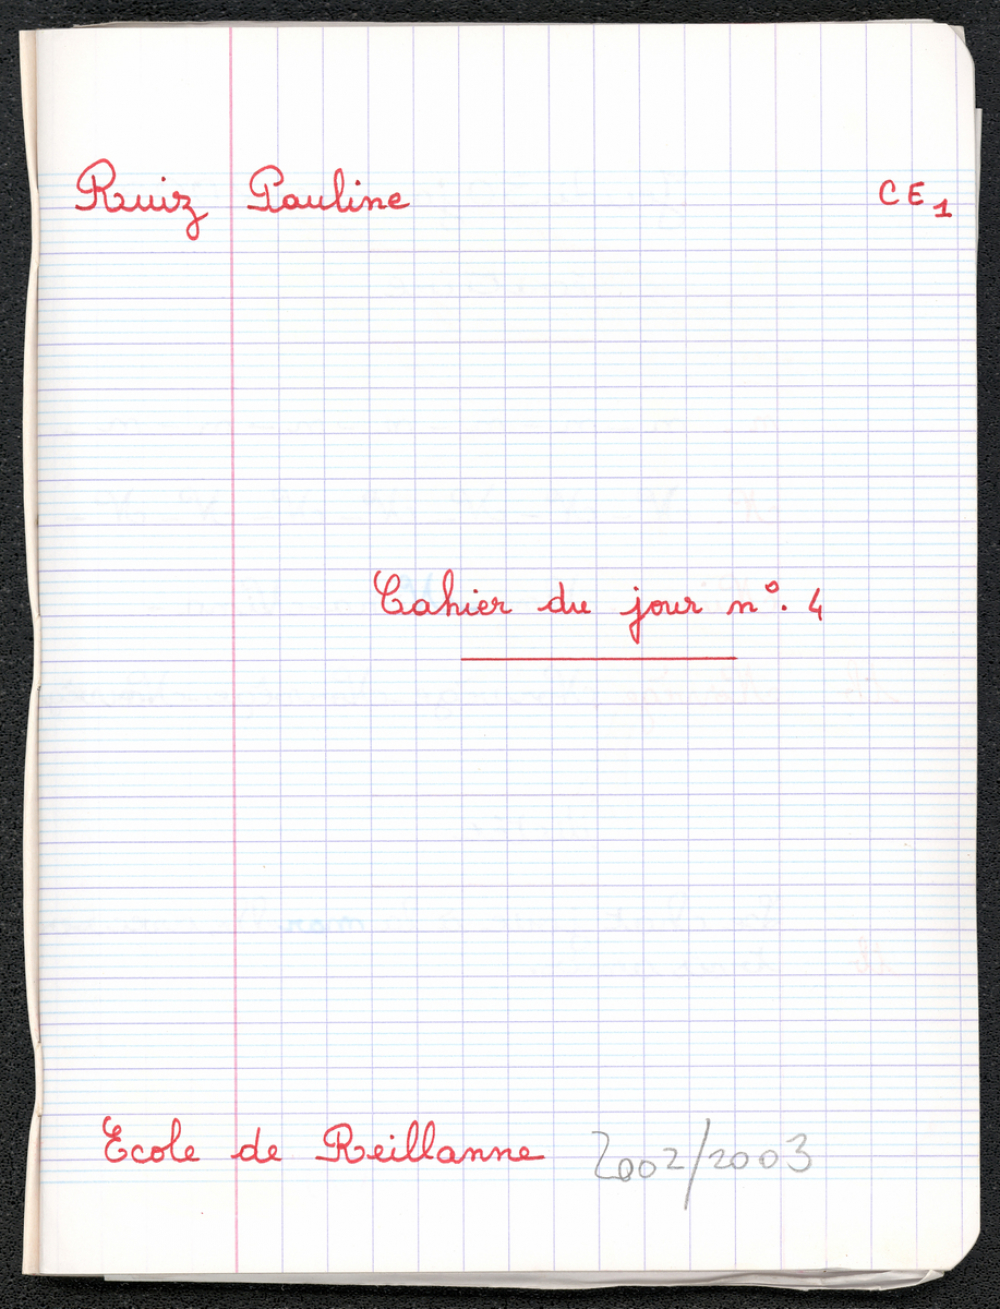 Ruiz Pauline CE1
Cahier du jour n°. 4
Ecole de Reillanne 2002/2003